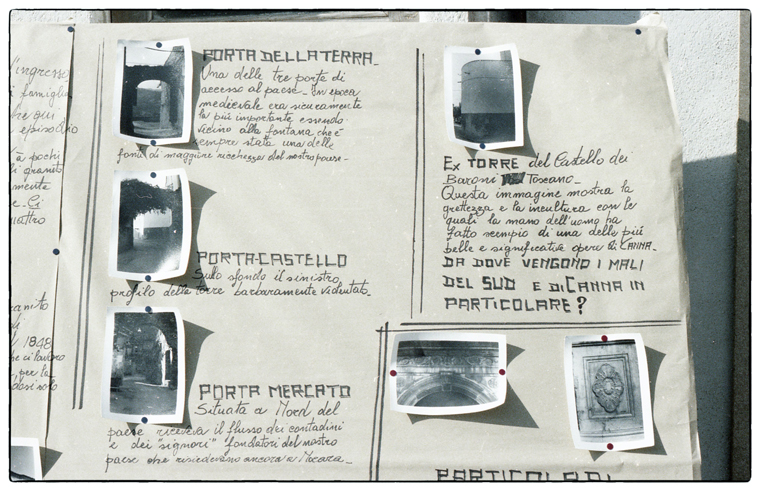 l'ingresso
famiglia
episodio
pochi
granito
mente
e. Ci
uattro
1848
per la
PORTA DELLA TERRA_
Una delle tre porte di
accesso al paese_ In epoca
medievale era sicuramente
la più importante essendo
vicino alla fontana che è
sempre stata una delle
fonti di maggiore ricchezza del nostro paese_
PORTA-CASTELLO
Sullo sfondo il sinistro
profilo della torre barbaramente violentata_
PORTA MERCATO
Situata a Nord del
paese riceveva il flusso dei contadini
e dei "signori" fondatori del nostro
paese che risiedevano ancora a
EX TORRE del Castello dei
Baroni Toscano_
Questa immagine mostra la
grettezza e la incultura con le
quali la mano dell'uomo ha
fatto scempio di una delle più
belle e significative opere di CANNA_
DA DOVE VENGONO I MALI
DEL SUD E DI CANNA IN
PARTICOLARE?
PARTICOLARI